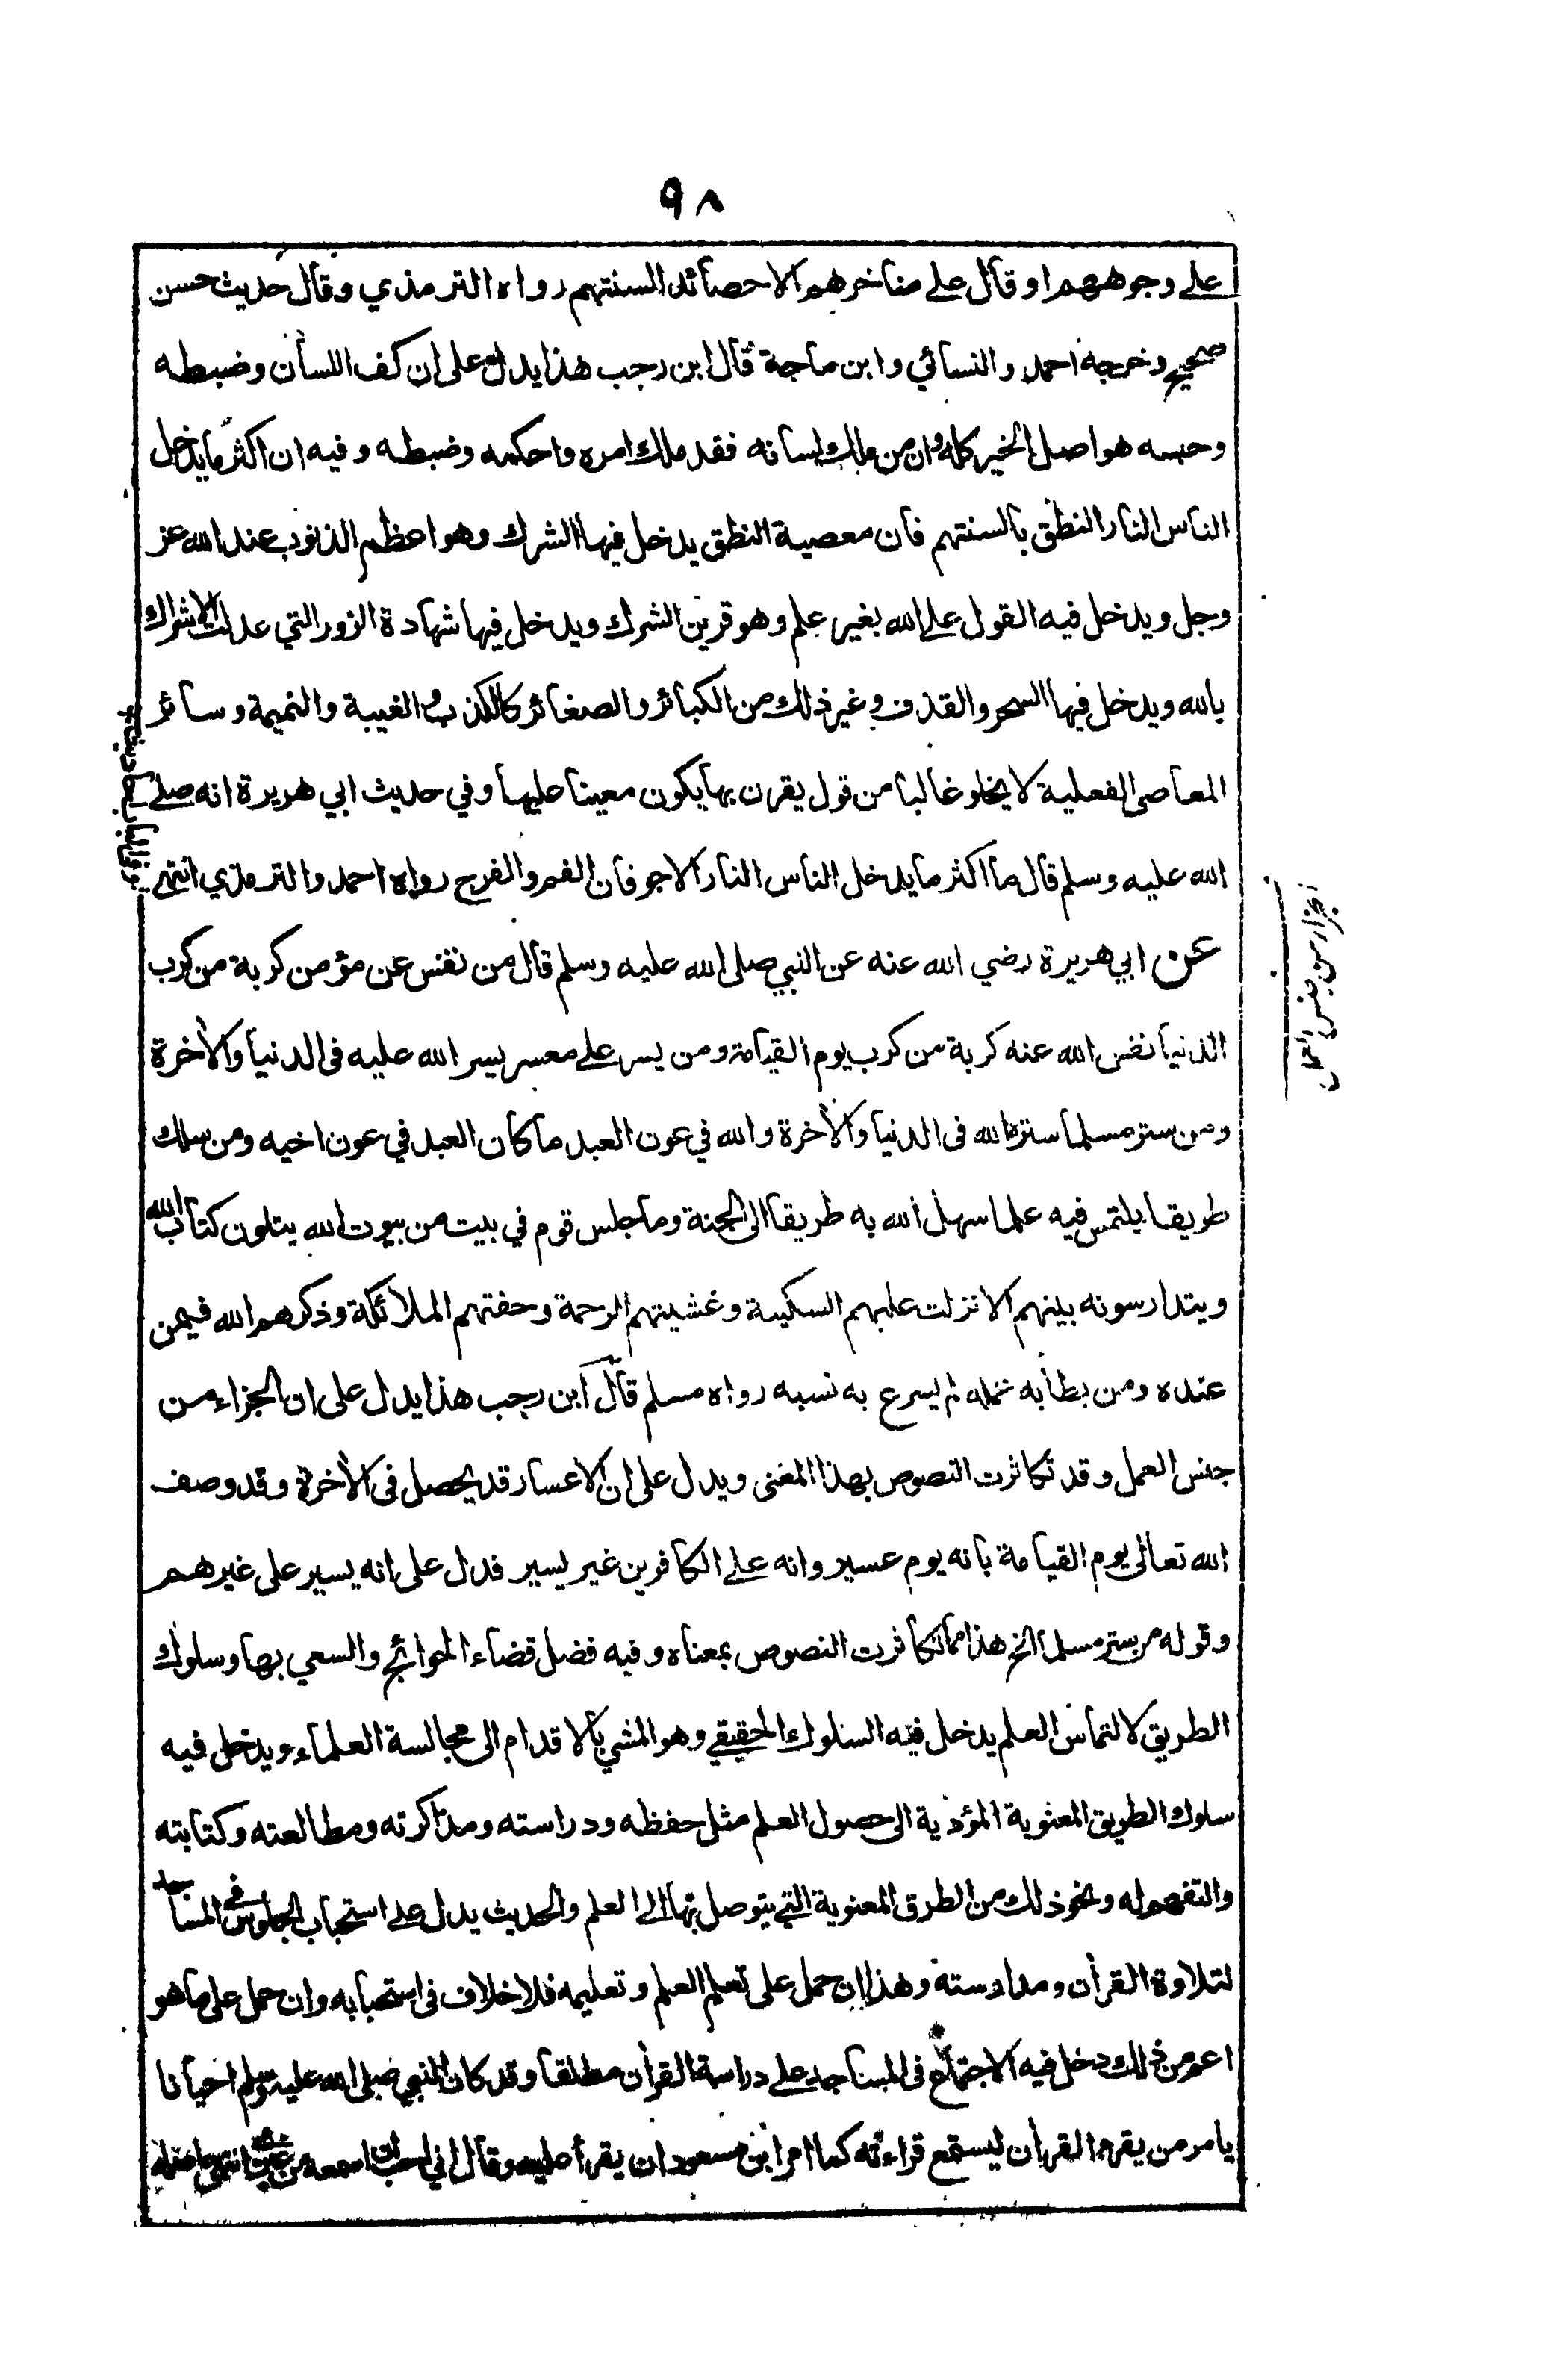 ٩٨
على وجوههم او قال على مناخرهم الا حصائد السنتهم رواه الترمذي وقال حديث حسن
صحيح وخرجه احمد والنسائي وابن ماجة قال ابن رجب هذا يدل على ان كف اللسان وضبطه
وحبسه هو اصل الخير كله وان من ملك لسانه فقد ملك امره واحكمه وضبطه وفيه ان اكثر ما يدخل
الناس النار النطق بالسنتهم فان معصية النطق يدخل فيها الشرك وهو اعظم الذنوب عند الله عز
وجل ويدخل فيه القول على الله بغير علم وهو قرين الشرك ويدخل فيها شهادة الزور التي عدلت الاشراك
بالله ويدخل فيها السحر والقذف وغير ذلك من الكبائر والصغائر كالكذب والغيبة والنميمة وسائر
المعاصى الفعلية لا يخلو غالبا من قول يقرن بها يكون معينا عليها وفي حديث ابي هريرة انه صلى
الله عليه وسلم قال ما اكثر ما يدخل الناس النار الاجوفان الفم والفرج رواه احمد والترمذي انتهى
وفي الباب احاديث
عن ابي هريرة رضي الله عنه عن النبي صلى الله عليه وسلم قال من نفس عن مؤمن كربة من كرب
الجزاء من جنس العمل
الدنيا نفس الله عنه كربة من كرب يوم القيامة ومن يسر على معسر يسر الله عليه فى الدنيا والأخرة
ومن ستر مسلما ستره الله فى الدنيا والأخرة والله في عون العبد ما كان العبد في عون اخيه ومن سلك
طريقا يلتمس فيه علما سهل الله به طريقا الى الجنة وما جلس قوم في بيت من بيوت الله يتلون كتاب الله
ويتدارسونه بينهم الا نزلت عليهم السكينة وغشيتهم الرحمة وحفتهم الملائكة وذكرهم الله فيمن
عنده ومن بطأ به عمله لم يسرع به نسبه رواه مسلم قال ابن رجب هذا يدل على ان الجزاء من
جنس العمل وقد تكاثرت النصوص بهذا المعنى ويدل على ان الاعسار قد يحصل فى الأخرة وقد وصف
الله تعالى يوم القيامة بانه يوم عسير وانه على الكافرين غير يسير فدل على انه يسير على غيرهم
وقوله من ستر مسلما الخ هذا مما تكاثرت النصوص بمعناه وفيه فضل قضاء الحوائج والسعي بها وسلوك
الطريق لالتماس العلم يدخل فيه السلوك الحقيقي وهو المشي بالاقدام الى مجالسة العلماء ويدخل فيه
سلوك الطريق المعنوية المؤدية الى حصول العلم مثل حفظه ودراسته ومذاكرته ومطالعته وكتابته
والتفهم له ونحو ذلك من الطرق المعنوية التي يتوصل بها الى العلم والحديث يدل على استحباب الجلوس في المساجد
لتلاوة القرأن ومدارسته وهذا ان حمل على تعلم العلم وتعليمه فلا خلاف فى استحبابه وان حمل على ما هو
اعم من ذلك دخل فيه الاجتماع فى المساجد على دراسة القرأن مطلقا وقد كان النبي صلى الله عليه وسلم احيانا
يامر من يقرء القرأن ليستمع قراءته كما امر ابن مسعود ان يقرأ عليه وقال اني احب ان اسمعه من غيري انتهى حاصله